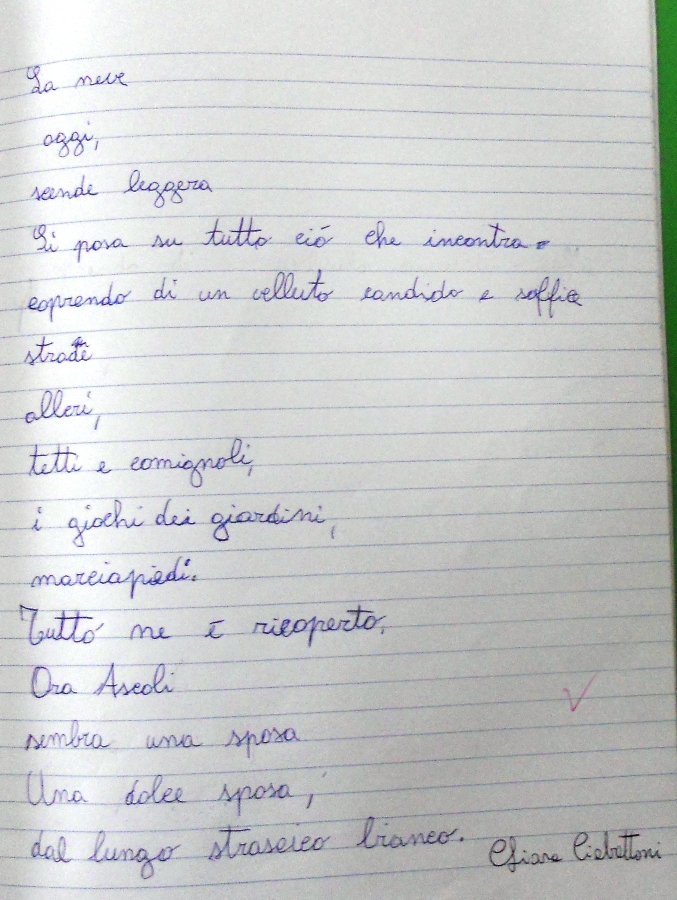 La neve
oggi,
scende leggera
Si posa su tutto ciò che incontra
coprendo di un velluto candido e soffice
strade
alleri,
tetti e comignoli,
i giochi dei giardini,
marciapiedi.
Tutto ne è ricoperto.
Ora Ascoli
sembra una sposa
Una dolce sposa,
dal lungo strascico bianco.
Chiara Ciabattoni